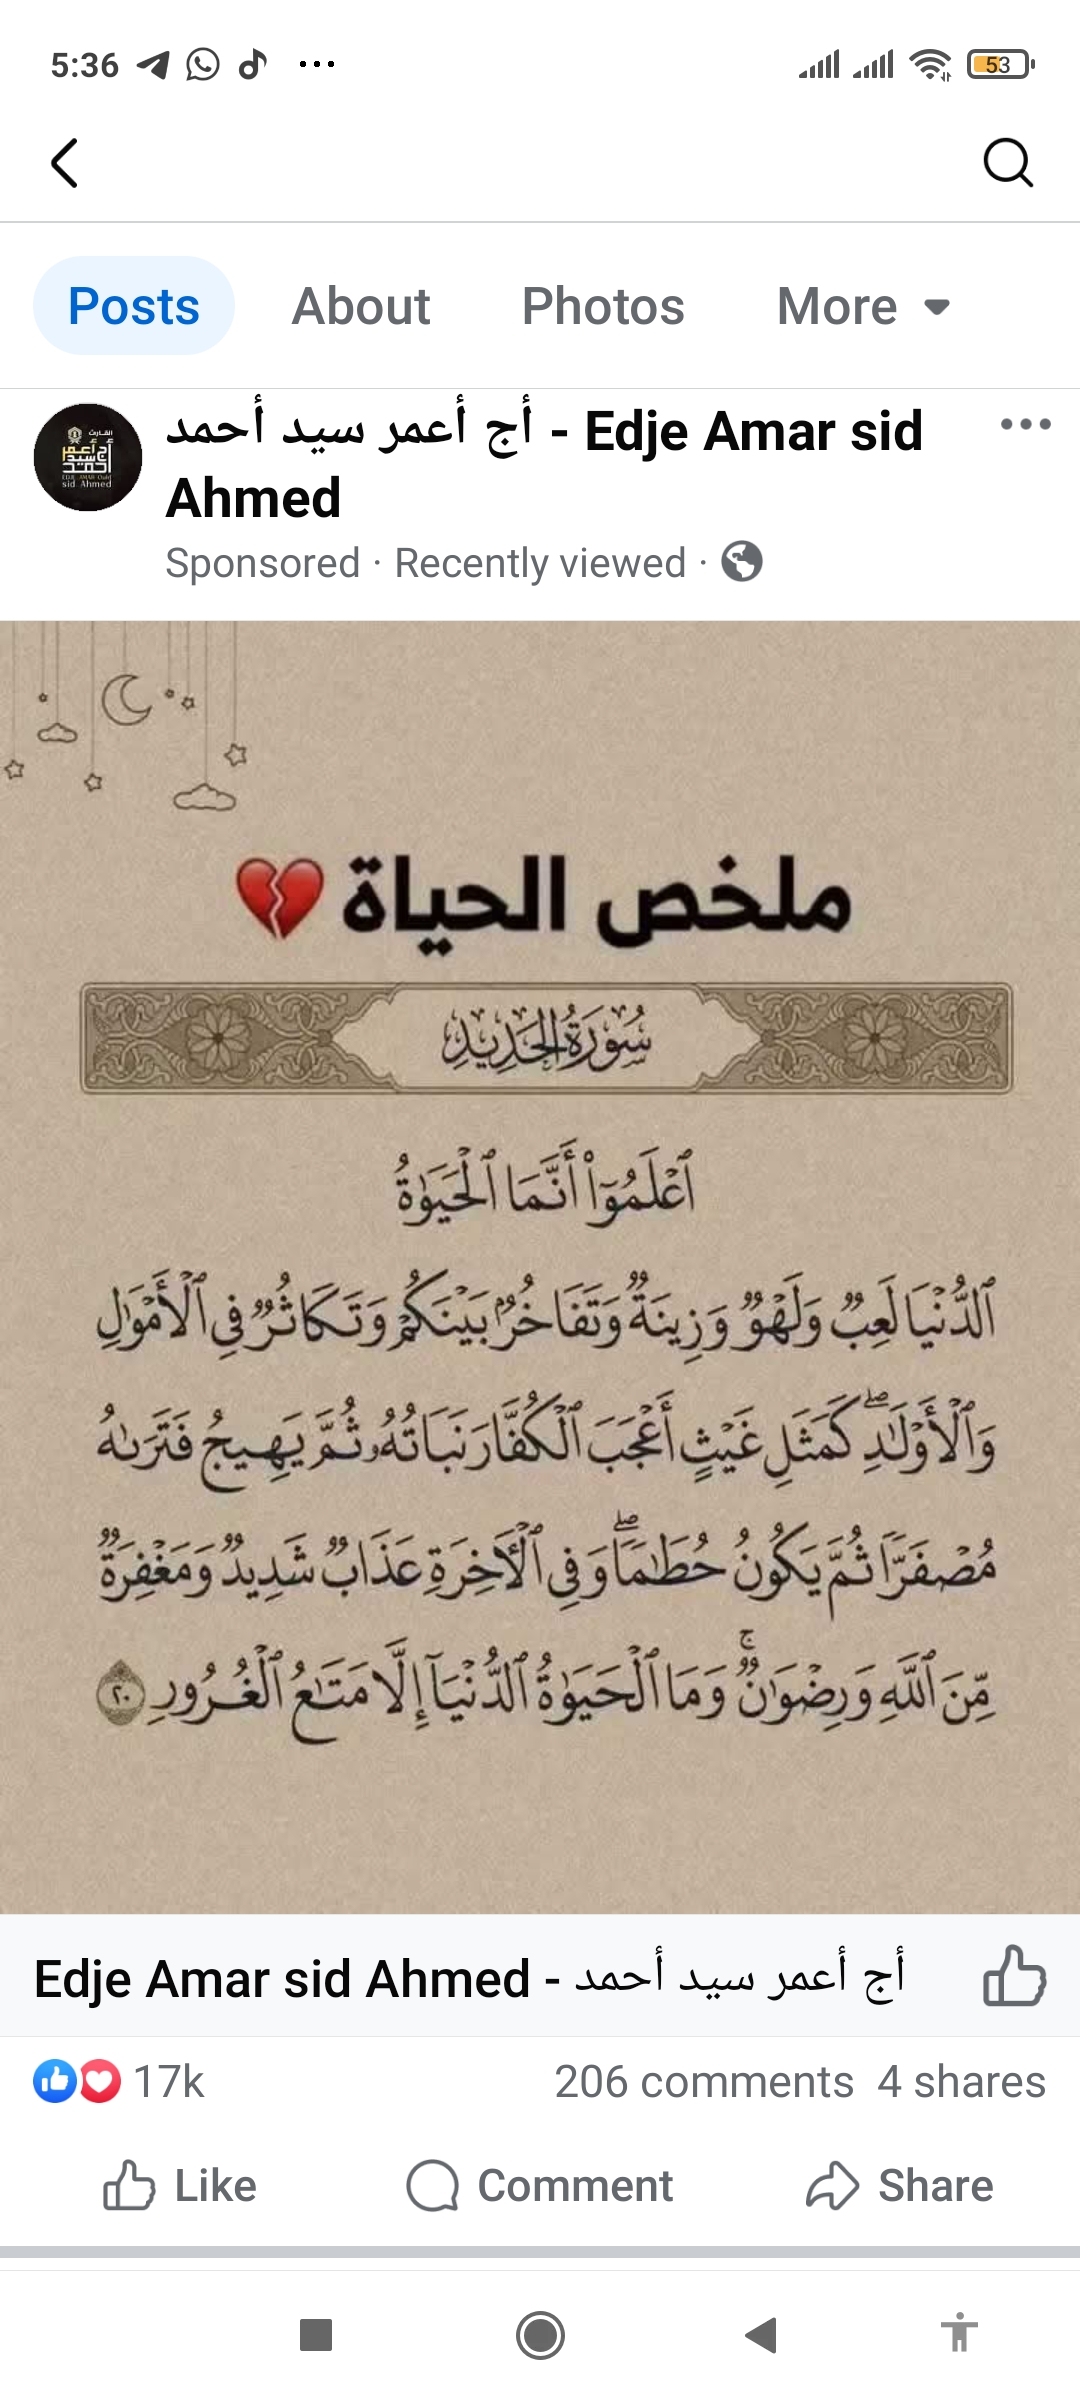 5:36
53
Posts About Photos More
أج أعمر سيد أحمد - Edje Amar sid
Ahmed
Sponsored · Recently viewed ·
القارئ
أج أعمر
سيد
أحمد
sid Ahmed
ملخص الحياة 💔
سُورَةُ الحَدِيدِ
ٱعۡلَمُوٓاْ أَنَّمَا ٱلۡحَيَوٰةُ
ٱلدُّنۡيَا لَعِبٞ وَلَهۡوٞ وَزِينَةٞ وَتَفَاخُرُۢ بَيۡنَكُمۡ وَتَكَاثُرٞ فِي ٱلۡأَمۡوَٰلِ
وَٱلۡأَوۡلَٰدِۖ كَمَثَلِ غَيۡثٍ أَعۡجَبَ ٱلۡكُفَّارَ نَبَاتُهُۥ ثُمَّ يَهِيجُ فَتَرَىٰهُ
مُصۡفَرّٗا ثُمَّ يَكُونُ حُطَٰمٗاۖ وَفِي ٱلۡأٓخِرَةِ عَذَابٞ شَدِيدٞ وَمَغۡفِرَةٞ
مِّنَ ٱللَّهِ وَرِضۡوَٰنٞۚ وَمَا ٱلۡحَيَوٰةُ ٱلدُّنۡيَآ إِلَّا مَتَٰعُ ٱلۡغُرُورِ ٢٠
Edje Amar sid Ahmed - أج أعمر سيد أحمد
17k 206 comments 4 shares
Like Comment Share